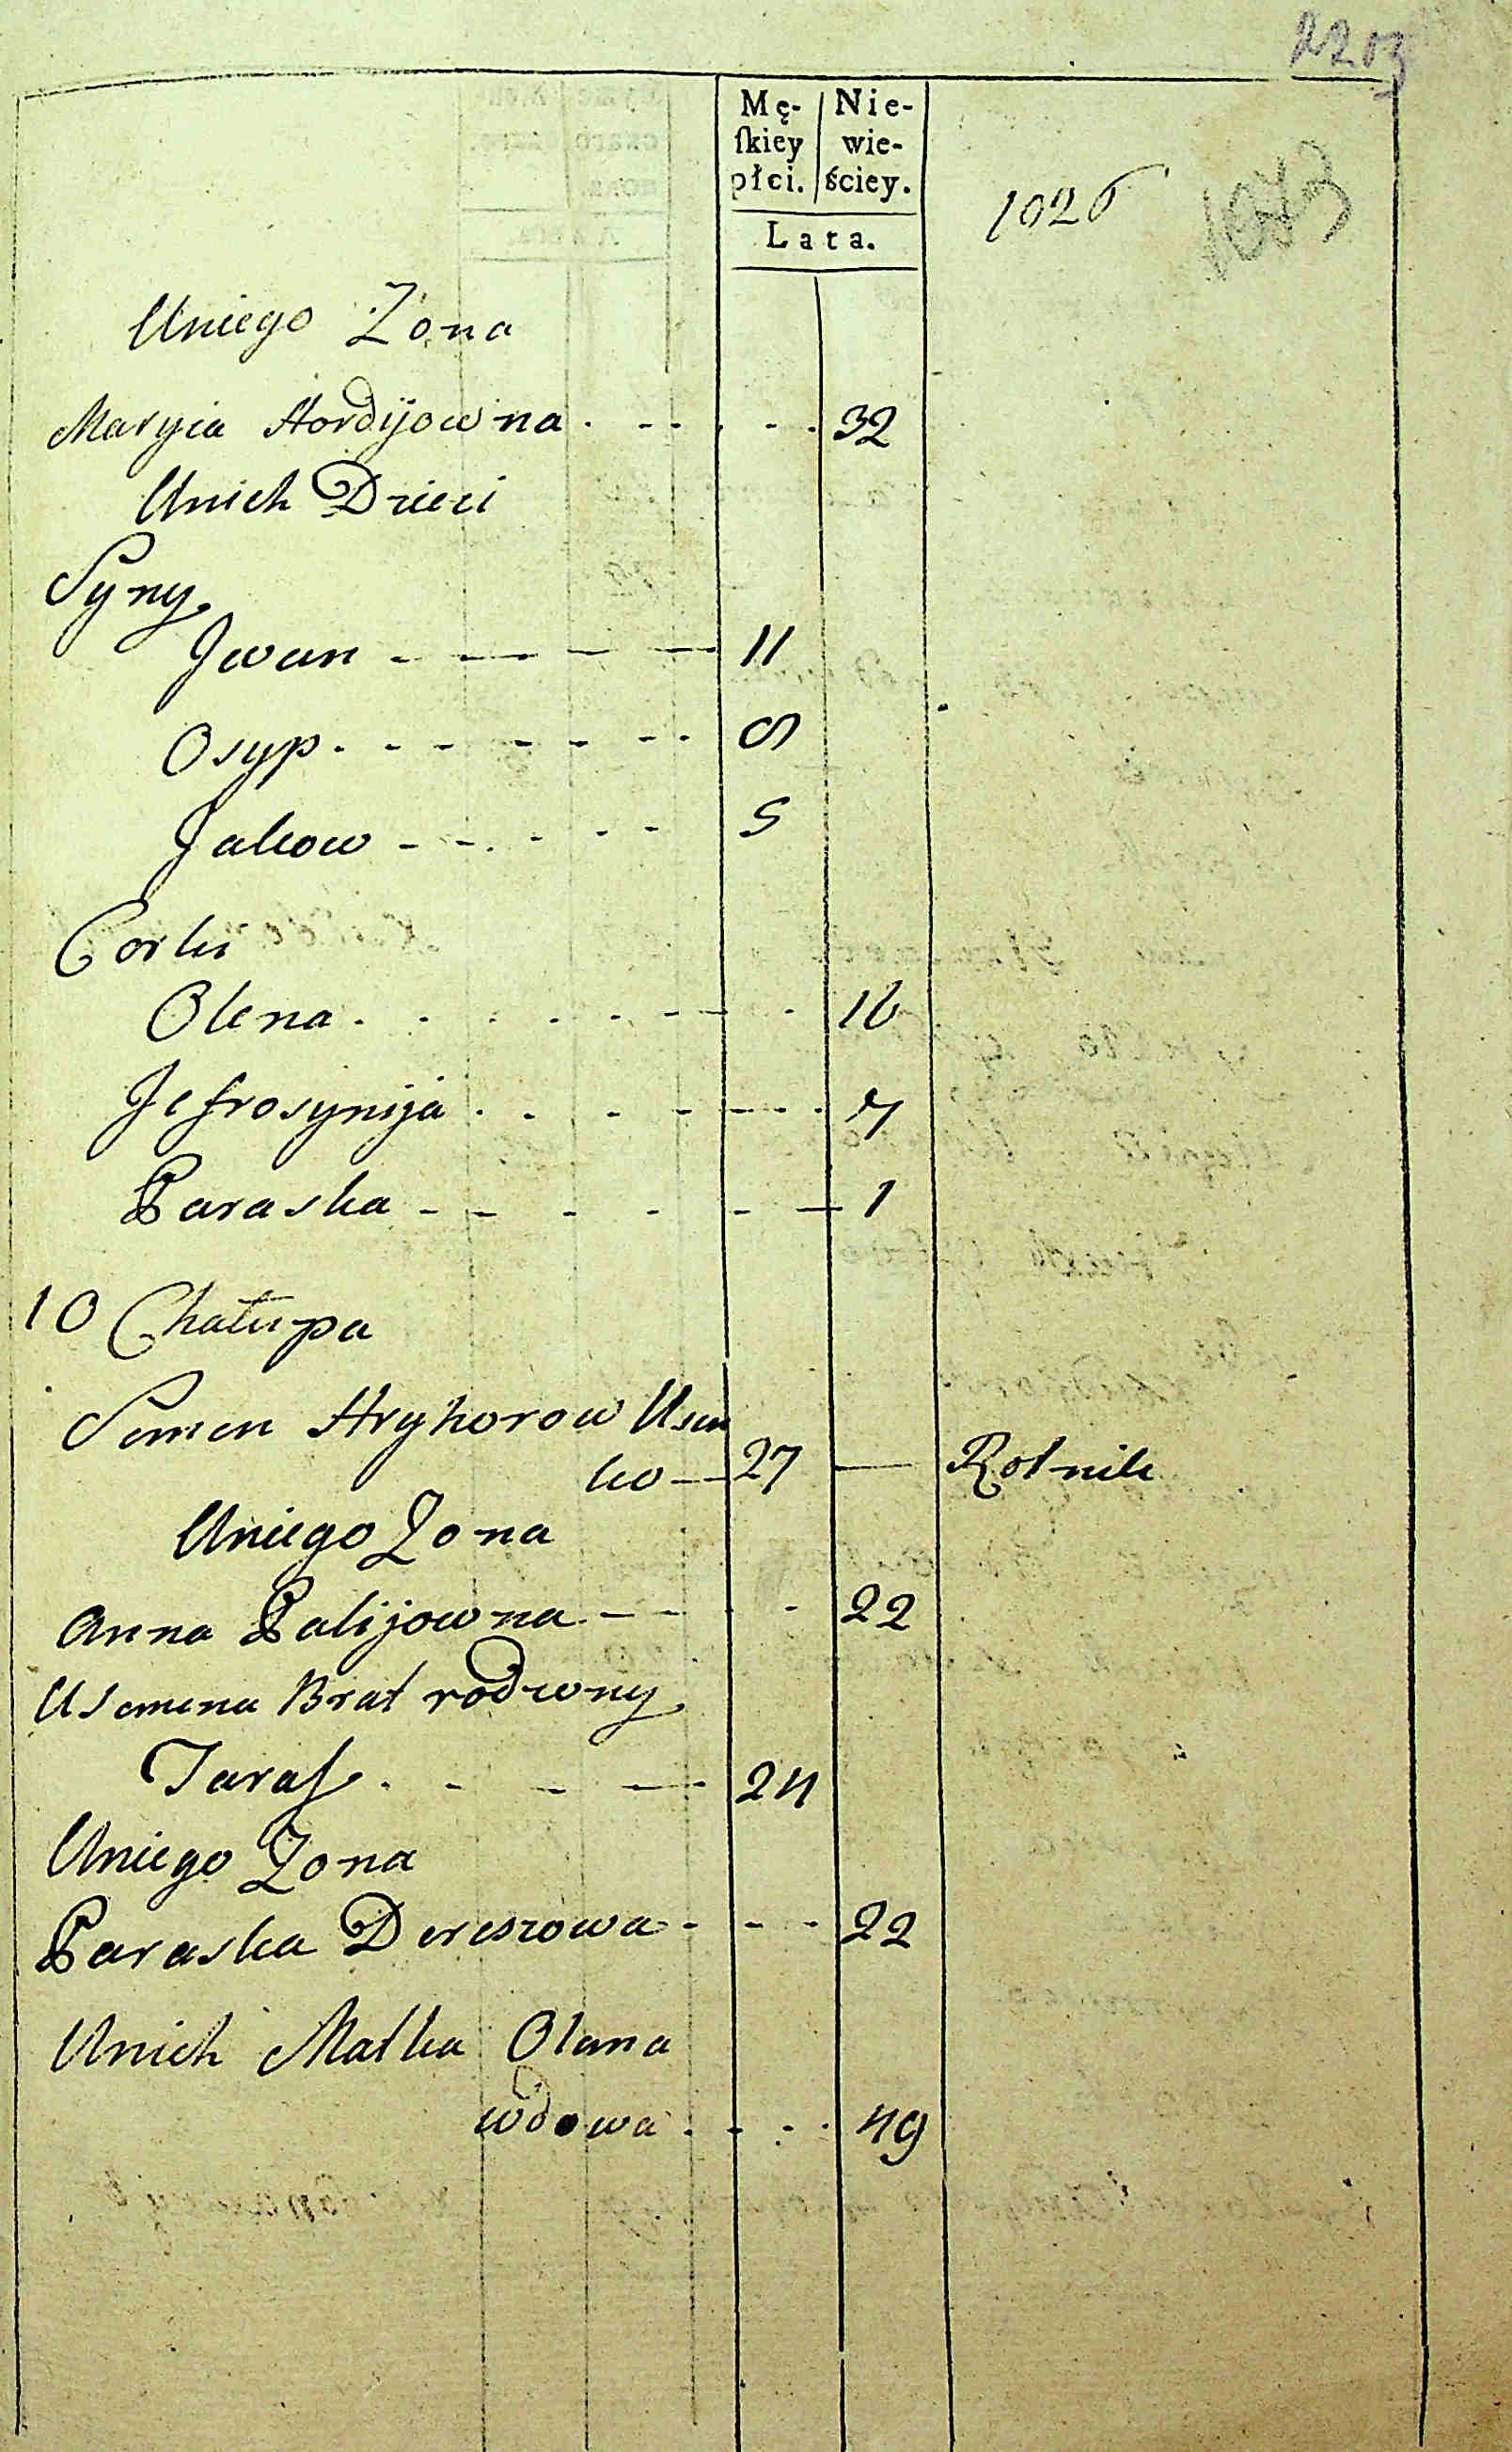 2203
Mę-
ſkiey
płci.
Nie-
wie-
ściey.
Lata.
1026
1073
Uniego Żona
Maryia Hordijowna 32
Unich Dzieci
Syny
Jwan 11
Osyp 9
Jakow 5
Corki
Olena 16
Jefrosynija 7
Paraska 1
10 Chałupa
Semen Hryhorow Usen
ko 27 Rolnik
Uniego Zona
Anna Palijowna 22
U Semena Brat rodzony
Taras 24
Uniego Zona
Paraska Dereszowa 22
Unich Matka Olena
wdowa 49